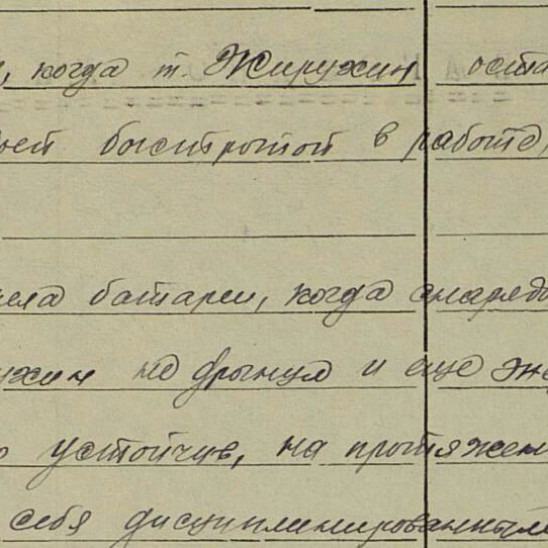 , когда т. Жирухин оста
быстротой в работе,
батареи, когда снаряды
ухин не дрынул и еще
устойчив, на протяжен
себя дисциплинированным